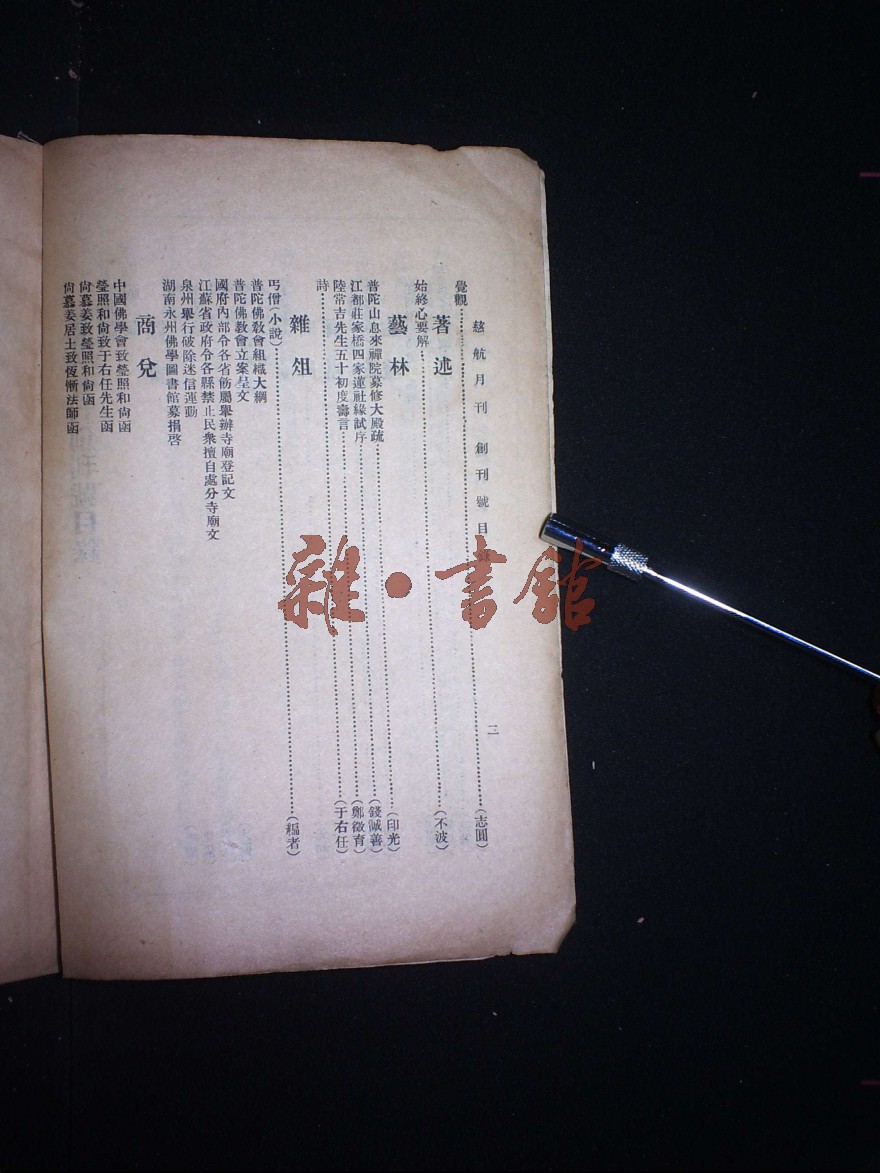 慈航月刊 創刊號目錄 三
覺觀(志圓)
著述
始終心要解(不波)
藝林
普陀山息來禪院募修大殿疏(印光)
江都莊家橋四家蓮社緣試序(錢誠善)
陸常吉先生五十初度壽言(鄭徵育)
詩(于右任)
雜俎
丐僧(小說)(編者)
普陀佛敎會組織大綱
普陀佛敎會立案呈文
國府內部令各省飭屬舉辦寺廟登記文
江蘇省政府令各縣禁止民衆擅自處分寺廟文
泉州舉行破除迷信運動
湖南永州佛學圖書館募捐啓
商兌
中國佛學會致瑩照和尙函
瑩照和尙致于右任先生函
尙慕姜致瑩照和尙函
尙慕姜居士致恆慚法師函
雜·書館